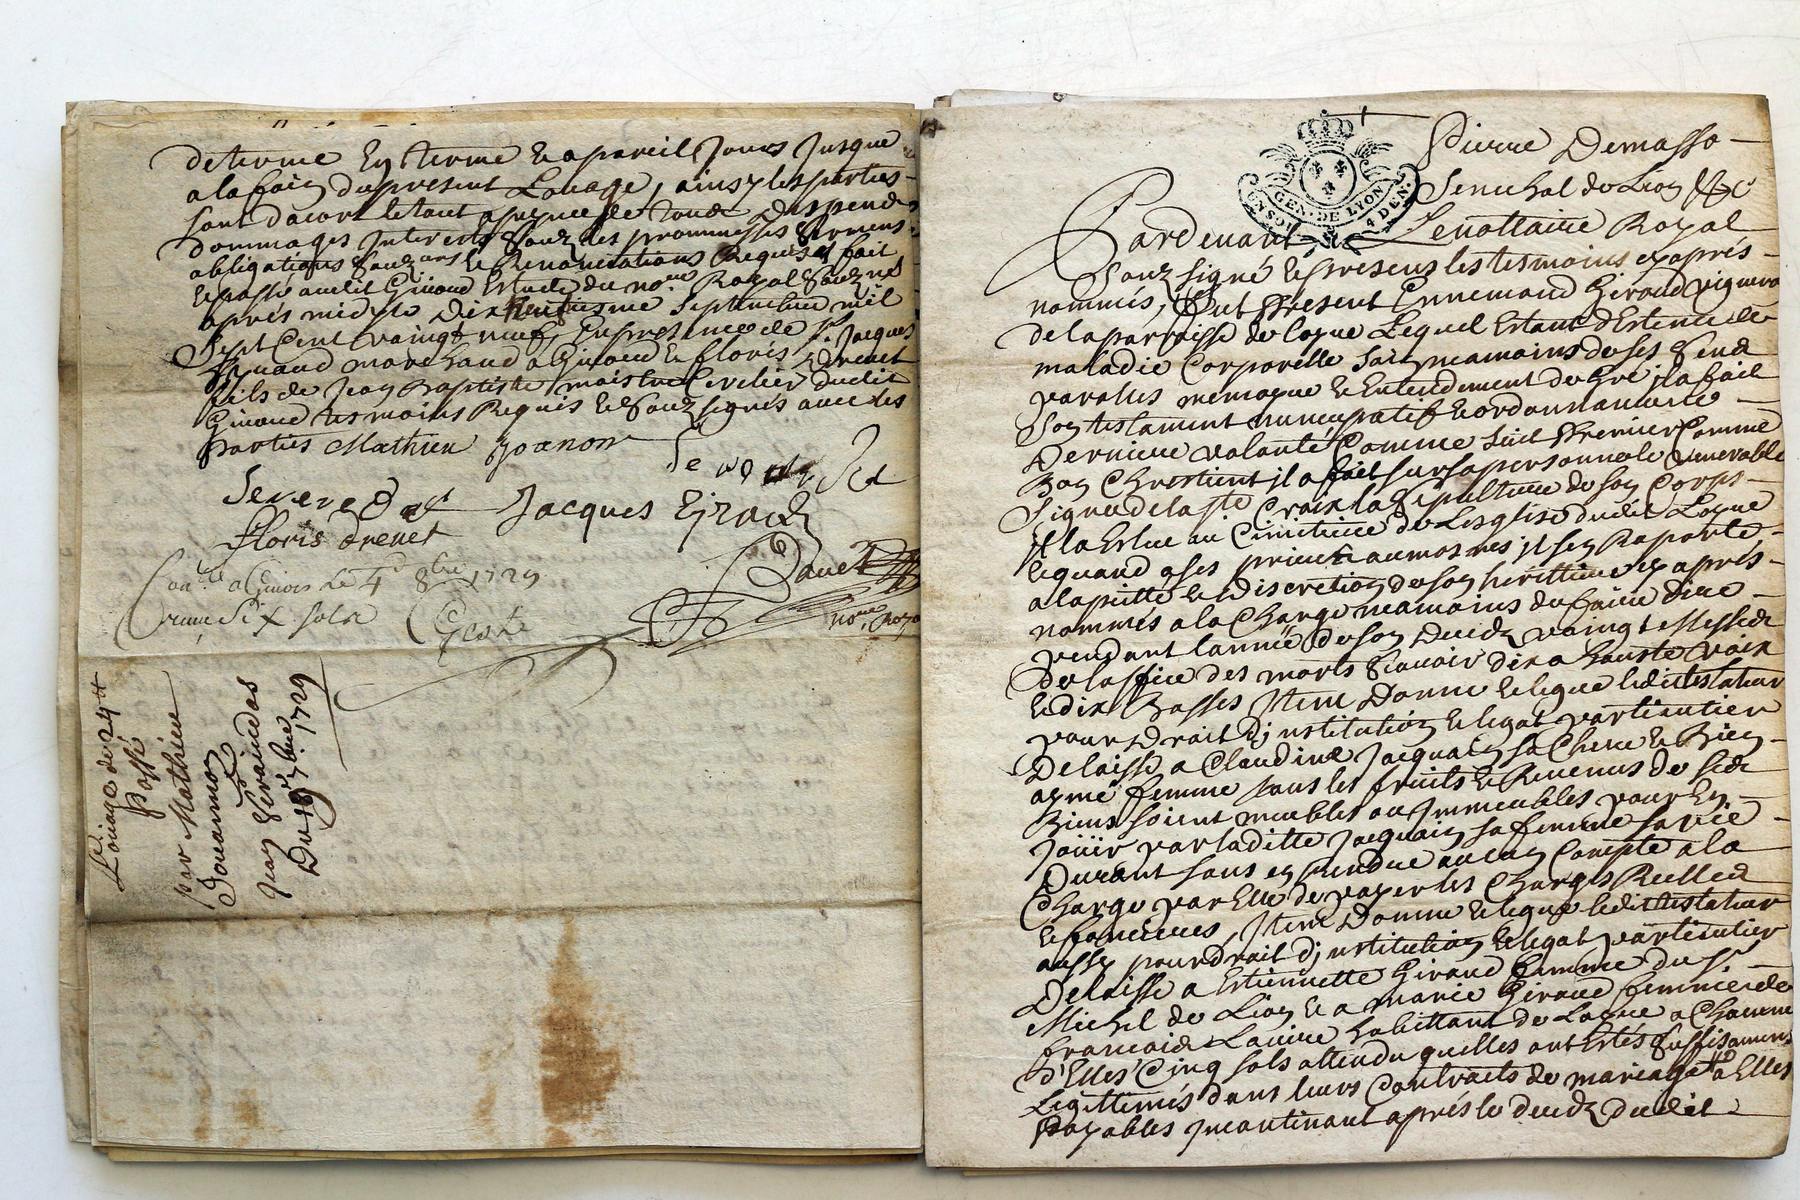 determe En terme & a pareil Jours Jusque
a la fain du present Louage, ainsy les parties
sont dacort le tout a peyne de toude despends
dommages Interests Souz les prommesses sermens
obligations Souz ans & Renonciations Requis & fait
& passé audit Givord Estude du no.re Royal Souz né
après midy le Dix septiesme Septembre mil
Sept Cent vaingt neuf, En presence de Sr. Jacques
marchand a Givord & floris drevet
fils de Jean Baptiste maistre Cerclier dudit
Givord tesmoins Requis & Souz signés avec les
parties Mathieu Joanon
Jacques
floris drevet
a Givors le 4e 8bre 1729
Six sols
no.re Roya
Louage de 24#
Passé
par Mathieu
Jouannon
Jean
Du 7bre 1729
Pierre Demasso
Senechal de Lion &c
GEN. DE LYON
4 DEN.
Pardevant Le nottaire Royal
Souz signé & presens les tesmoins cy après
nommés, fut present Ennemond Giroud vigneron
de la parroisse de Loyre Lequel Estant dEstenu de
maladie Corporelle sain neamoins de ses Sens
parolles memoyre & Entendement de Gré il a fait
Son testament nuncupatif & ordonnance de
Derniere volanté Comme suit Premier Comme
Bon Chrestient il a fait sur sa personne le venerable
Signe de la Ste Croix la Sepulture de son Corps
Il la Eslue au Cimitiere de Lesglise dudit Loyre
& quand a ses prieres aumosnes il sen Raporte
a la pitte & discretion de son herittiere cy après
nommés a la Charge neamoins de faire dire
pendant lannée de son deceds vaingt Messes
de loffice des morts scavoir dix a hauste voix
& dix Basses Item Donne & legue ledit testateur
pour Droit d'institution & legat particulier
Delaisse a Claudine Jacquain sa Chere & Bien
aymé femme tous les fruits & Revenus de ses
Biens soient meubles ou Immeubles pour En
Joüir par laditte Jacquain sa femme sa vie
Durant sans en rendre aucun Compte a la
Charge par Elle de payer les Charges Reelles
& foncieres, Item Donne & legue ledit testateur
aussy pour droit d'institution & legat particulier
Delaisse a Estiennette Giroud femme du Sr.
Michel de Lion & a marie Giroud femme de
francois habittant de Loyre a Chacune
d'Elles Cinq sols attendu quelles ont Estés Suffisament
Legittimés dans leurs Contraits de mariage a Elles
Payables Incontinant après le deceds dudit